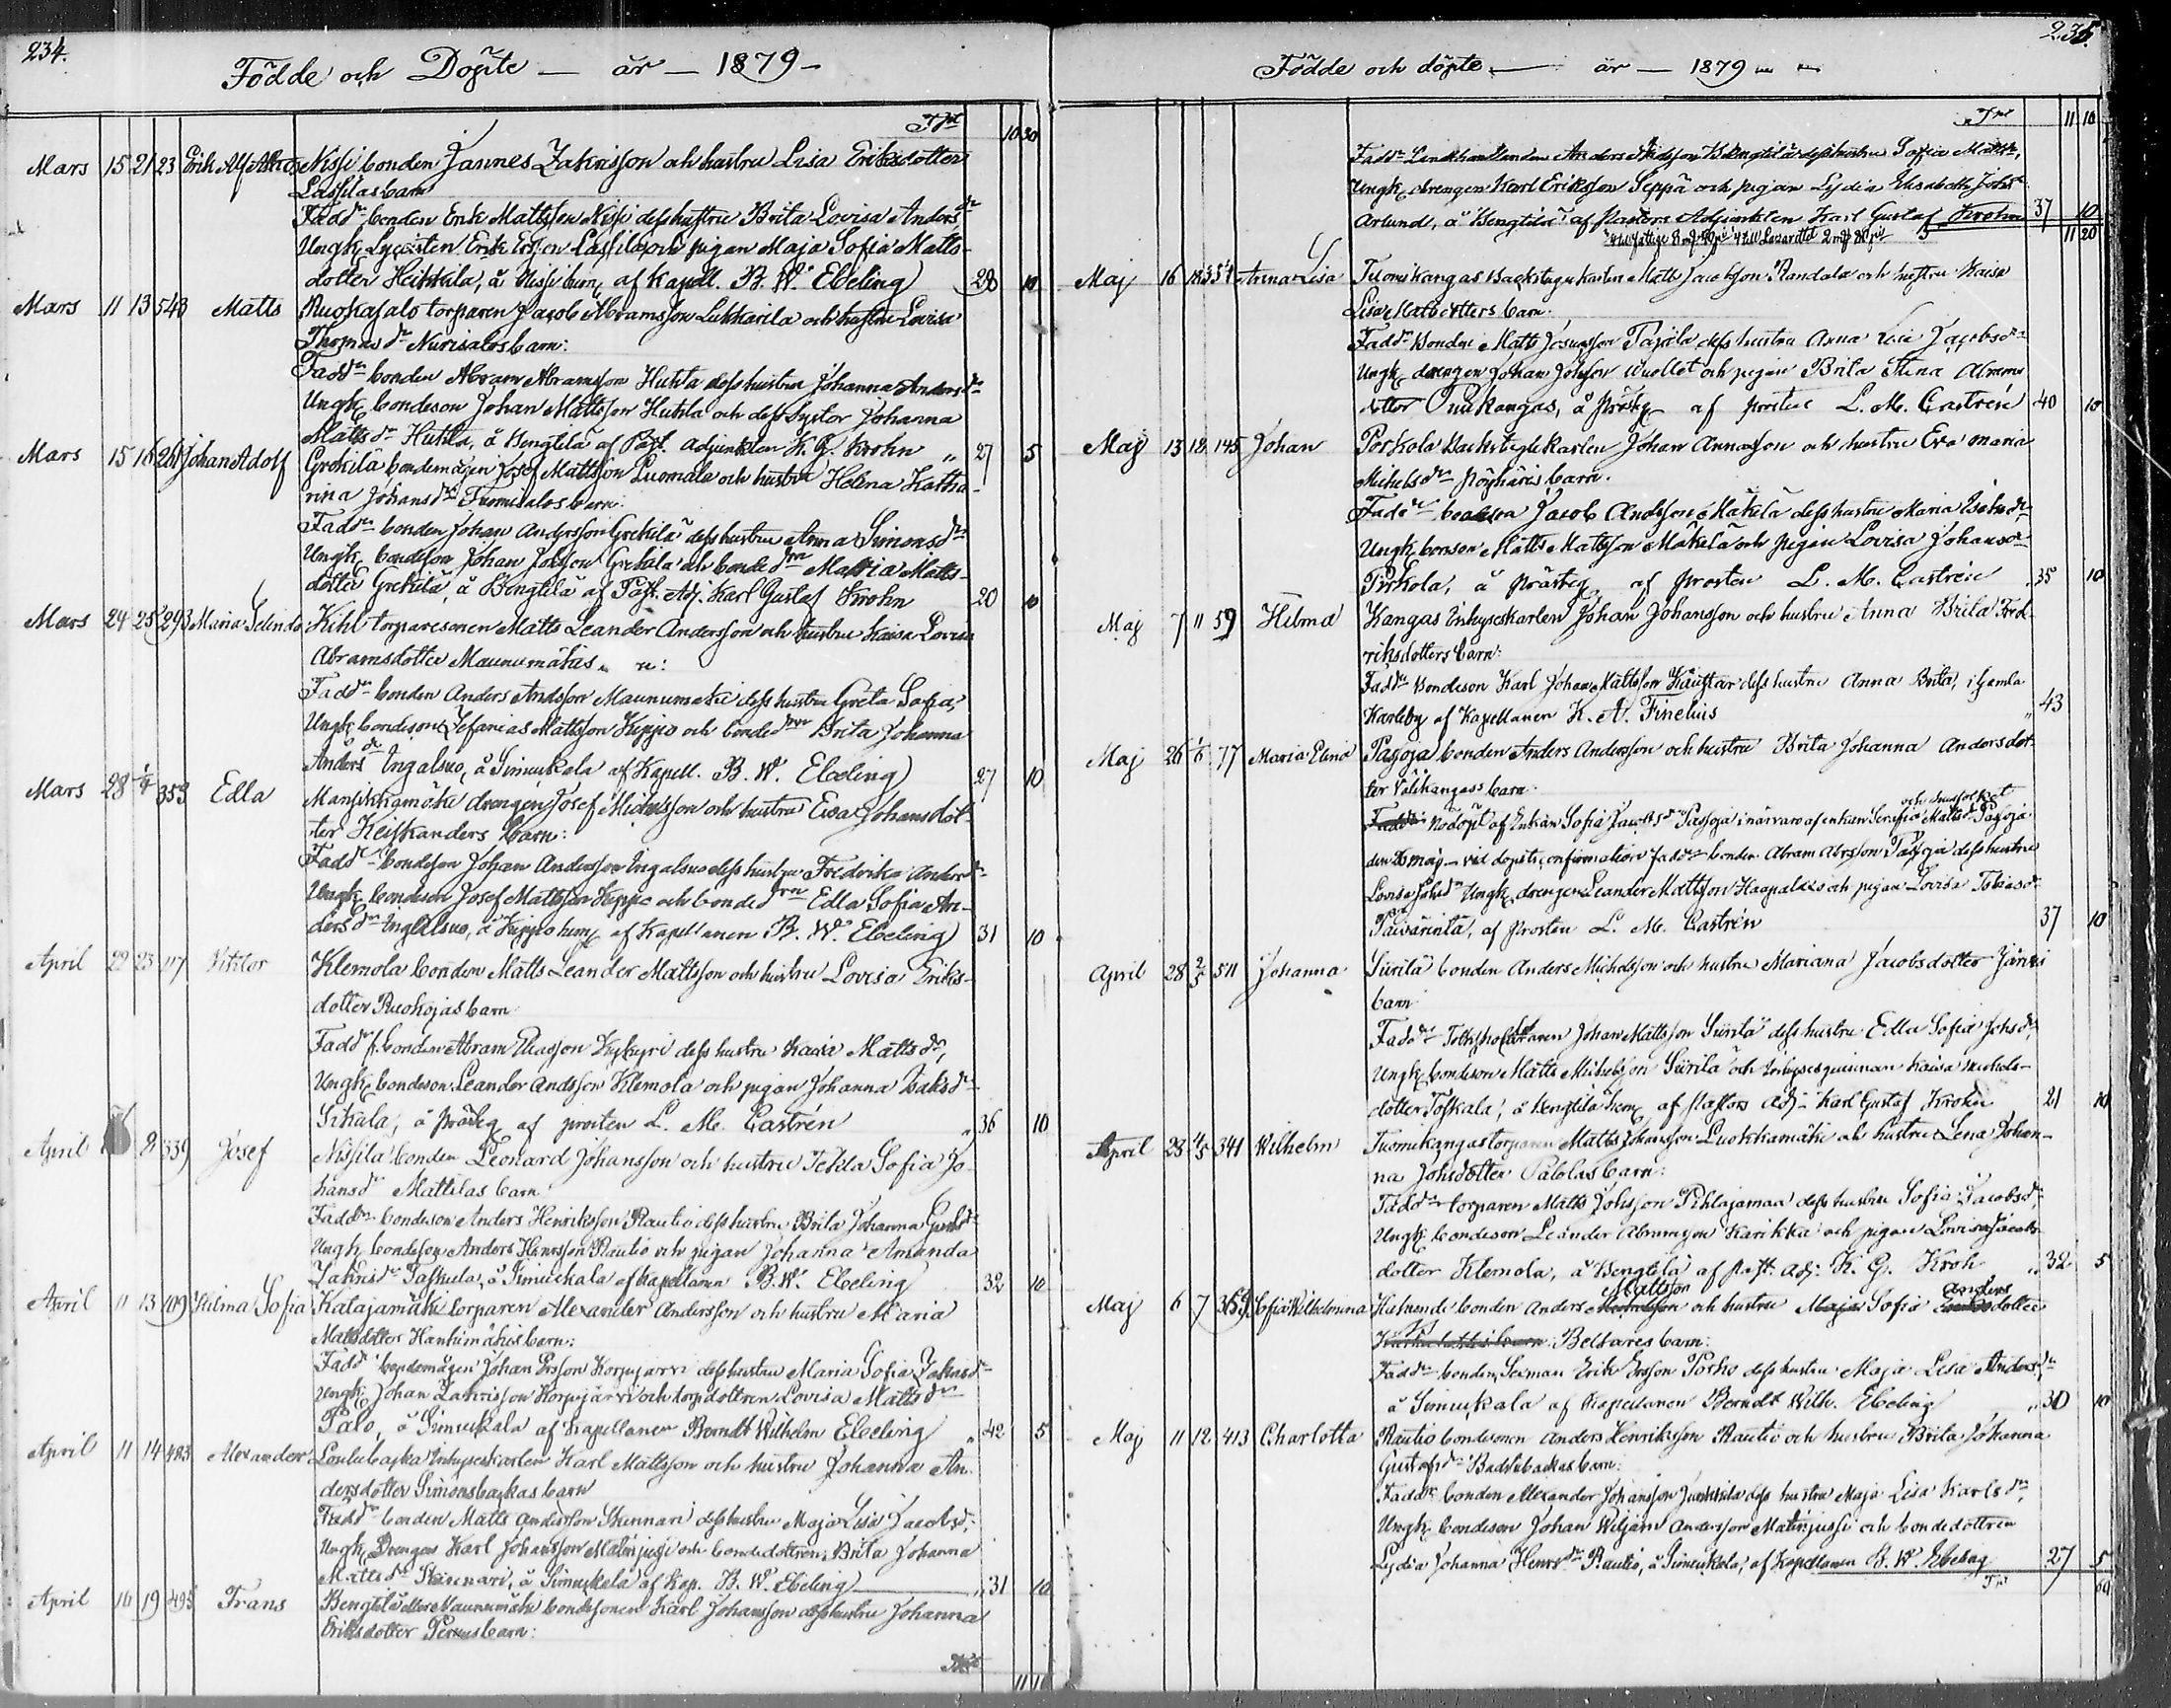 234.
Födde och Döpte — år — 1879 —
Tpt 10 30
Mars 15 21 23 Erik Alf. Nissi bonden Jannes Zakrisson och hustru Lisa Eriksdotter
Lassilas barn
Faddr bonden Erik Mattsson Nissi dess hustru Brita Lovisa Andersdr
Ungk. Erik Ersson Lassila och pigan Maja Sofia Matts-
dotter Heikkilä, å Nissi hem af Kapell. B. W. Ebeling 28 10
Mars 11 13 543 Matts Ruokasalo torparen Jacob Abramsson Lukkarila och hustru Lovisa
Thomasdr Nurisalos barn:
Faddr bonden Abram Abramsson Huhta dess hustru Johanna Andersdr
Ungk. bondeson Johan Mattsson Huhta och dess Syster Johanna
Mattsdr Huhta, å Bengtilä af Past. Adjunkten K. G. Krohn „ 27 5
Mars 15 16 261 Johan Adolf Grekilä bondemågen Josef Mattsson Luomala och hustru Helena Katha-
rina Johansdr Tuomisalos barn:
Faddr bonden Johan Andersson Grekilä dess hustru Anna Simonsdr
Ungk. bondeson Johan Johsson Grekilä och bondedrn Maria Matts-
dotter Grekilä, å Bengtilä af Past. Adj. Karl Gustaf Krohn 20 10
Mars 24 25 293 Maria Selinda Kihl torparesonen Matts Leander Andersson och hustru Kaisa Lovisa
Abramsdotter Maunumäkis
Faddr bonden Anders Andsson Maunumäki dess hustru Greta Sofia,
Ungk. bondeson Zefanias Mattsson Keppo och bondedrn Brita Johanna
Andersdr Ingalsuo, å Simuskala af Kapell. B. W. Ebeling 27 10
Mars 28 1/4 353 Edla Mansikkamäki drengen Josef Michelsson och hustru Eva Johansdot-
ter Keiskanders barn:
Faddr bondeson Johan Andersson Ingalsuo dess hustru Fredrika Andersdr
Ungk. bondeson Josef Mattsson Keppo och bondedrn Edla Sofia An-
dersdr Ingalsuo, å Keppo hem af Kapellanen B. W. Ebeling 31 10
April 22 23 117 Viktor Klemola bonden Matts Leander Mattsson och hustru Lovisa Eriks-
dotter Ruokojas barn
Faddr f. bonden Abram Eliasson Kykyri dess hustru Kaisa Mattsdr,
Ungk. bondeson Leander Andsson Klemola och pigan Johanna Isaksdr
Sikala, å prästg. af prosten L. M. Castrén „ 36 10
April 2 339 Josef Nissilä bonden Leonard Johansson och hustru Tekla Sofia Jo-
hansdr Mattilas barn
Faddr bondeson Anders Henriksson Rautio dess hustru Brita Johanna Gustdr
Ungk. bondeson Anders Henrsson Rautio och pigan Johanna Amanda
Zakrisdr Taskula, å Simuskala af Kapellanen B. W. Ebeling 32 10
April 11 13 109 Hilma Sofia Katajamäki torparen Alexander Andersson och hustru Maria
Mattsdotter Hanhimäkis barn:
Faddr bondemågen Johan Ersson Korpijärvi dess hustru Maria Sofia Zakrisdr
Ungk. Johan Zakrisson Korpijärvi och torpdottren Lovisa Mattsdr
Palo, å Simuskala af Kapellanen Berndt Wilhelm Ebeling „ 42 5
April 11 14 483 Alexander Loulubacka Inhyseskarlen Karl Mattsson och hustru Johanna An-
dersdotter Simonsbackas barn
Faddr bonden Matts Andersson Skinnari dess hustru Maja Lisa Jacobsdr,
Ungk. Drengen Karl Johansson Matinjussi och bondedottren Brita Johanna
Mattsdr Skinnari, å Simuskala af Kap. B. W. Ebeling „ 31 10
April 16 19 495 Frans Bengtilä eller Maunumäki bondesonen Karl Johansson dess hustru Johanna
Eriksdotter Pernus barn:
Tpt 11 10
235.
Födde och döpte — år — 1879
Tpt 11 10
Faddr Anders Andsson Bengtilä dess hustru Sofia Mattsdr,
Ungk. drengen Karl Eriksson Seppä och pigan Lydia Elisabeth Johsdr
Aslund, å Bengtilä af Pastors Adjunkten Karl Gustaf Krohn 37 10
11 20
Maj 16 18 354 Anna Lisa Tuomikangas Backstugukarlen Matts Jacobsson Randala och hustru Kaisa
Lisa Mattsdotters barn.
Faddr bonden Matts Josefsson Pajula dess hustru Anna Lisa Jacobsdr
Ungk. drengen Johan Johsson Wuollet och pigan Brita Stina Abrams
dotter Onukangas, å prästg. af prosten L. M. Castrén 40 10
Maj 13 18 145 Johan Porkola Backstugukarlen Johan Annasson och hustru Eva Maria
Michelsdr Pöyhäris barn.
Faddr bonden Jacob Andsson Mäkelä dess hustru Maria Isaksdr,
Ungk. bonson Matts Mattsson Mäkelä och pigan Lovisa Johansdr
Porkola, å prästg. af prosten L. M. Castrén „ 35 10
Maj 7 11 59 Hilma Kangas Inhyseskarlen Johan Johansson och hustru Anna Brita Fred-
riksdotters barn:
Faddr Bondeson Karl Johan Mattsson Kaustar dess hustru Anna Brita, i Gamla
Karleby af Kapellanen K. A. Finelius „ 43
Maj 26 1/6 77 Maria Elina Pasoja bonden Anders Andersson och hustru Brita Johanna Andersdot-
ter Välikangass barn:
och husfolket
Nödöpt af Enkan Sofia Jacobsdr Passoja i närvaro af enkan Serafia Mattsdr Pasoja
den 26 maj — vid dopets confirmation Faddr bonden Abram Abrsson Passoja dess hustru
Lovisa Johsdr Ungk. drengen Leander Mattsson Haapalais och pigan Lovisa Tobiasdr
Päivärinta, af prosten L. M. Castrén 37 10
April 28 2/5 511 Johanna Siirilä bonden Anders Michelsson och hustru Mariana Jacobsdotter Järvi
barn
Faddr Johan Mattsson Siirilä dess hustru Edla Sofia Johsdr,
Ungk. bondeson Matts Michelsson Siirilä och Inhysesqvinnan Kaisa Michels-
dotter Toskala, å Bengtilä hem af Pastors Adj. Karl Gustaf Krohn 21 10
April 28 4/5 341 Wilhelm Tuomikangas torparen Matts Johansson Luokkamäki och hustru Lena Johan-
na Johsdotter Palolas barn:
Faddr torparen Matts Johsson Pihlajamaa dess hustru Sofia Jacobsdr,
Ungk. bondeson Leander Abramsson Karikka och pigan Lovisa Jacobs-
dotter Klemola, å Bengtilä af past. adj. K. G. Kroh „ 32 5
Mattsson anders
Maj 6 7 359 Sofia Wilhelmina Huhnonde bonden Anders och hustru Maja Sofia dotter
Beltares barn:
Faddr bonden, Sexman Erik Ersson Porko dess hustru Maja Lisa Andersdr
å Simuskala af Kapellanen Berndt Wilh. Ebeling „ 30 10
Maj 11 12 413 Charlotta Rautio bondesonen Anders Henriksson Rautio och hustru Brita Johanna
Gustafsdr Badkebackas barn:
Faddr bonden Alexander Johansson Junkkila dess hustru Maja Lisa Karlsdr,
Ungk. bondeson Johan Wiljam Andersson Matinjussi och bondedottren
Lydia Johanna Henrsdr Rautio, å Simuskala, af Kapellanen B. W. Ebeling 27 5
Tpt 60